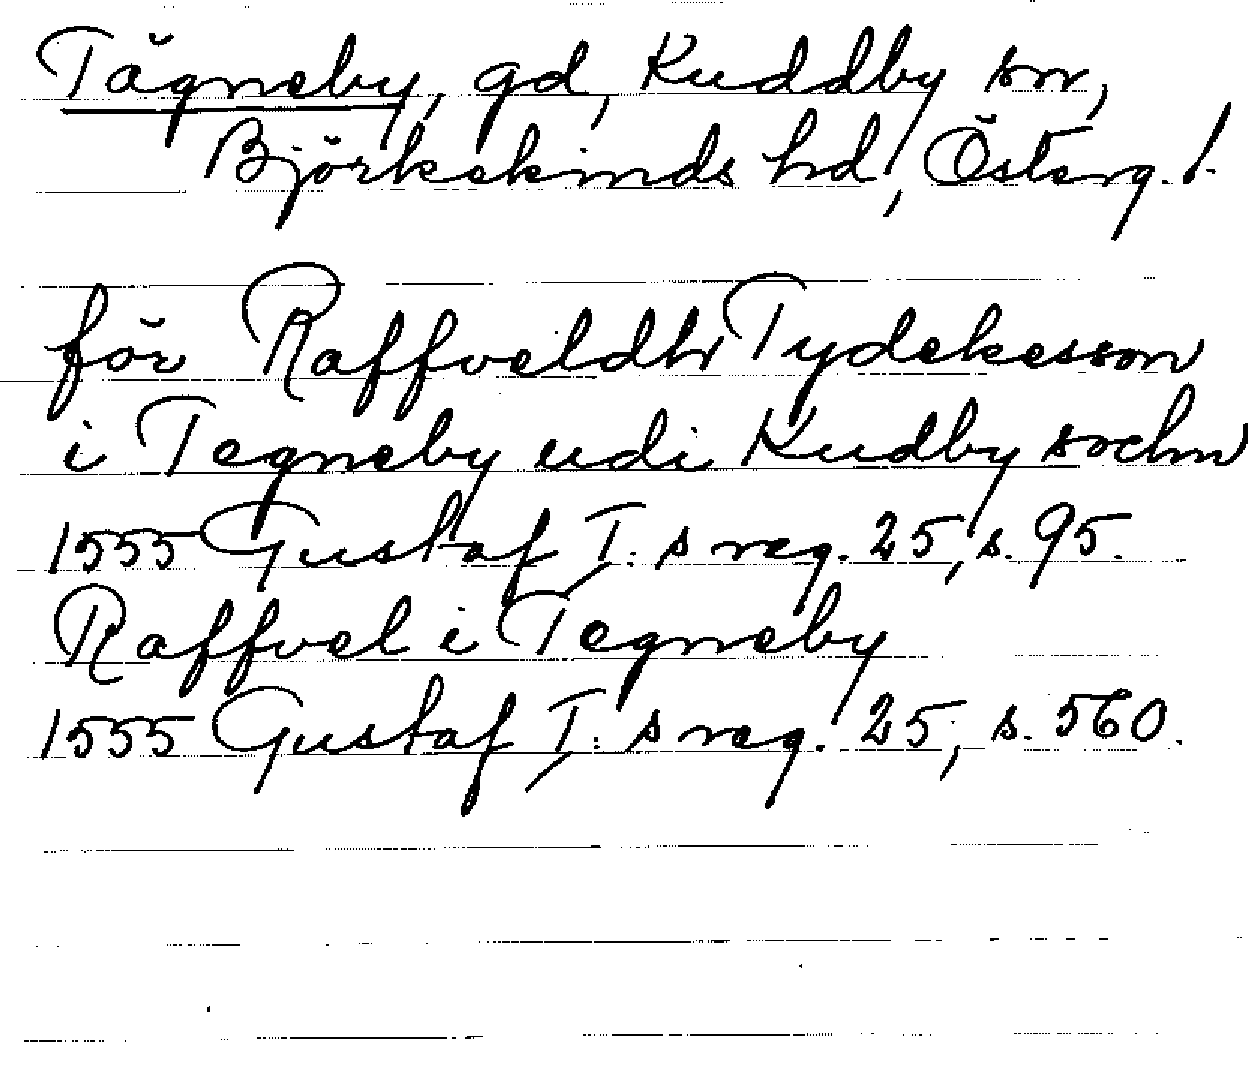 Tägneby, gd, Kuddby sn,
Björkekinds hd, Österg. l.
för Raffveldh Tydekesson
i Tegneby udi Kudby sochn
1555 Gustaf I:s reg. 25, s. 95.
Raffvel i Tegneby
1555 Gustaf I:s reg. 25, s. 560.